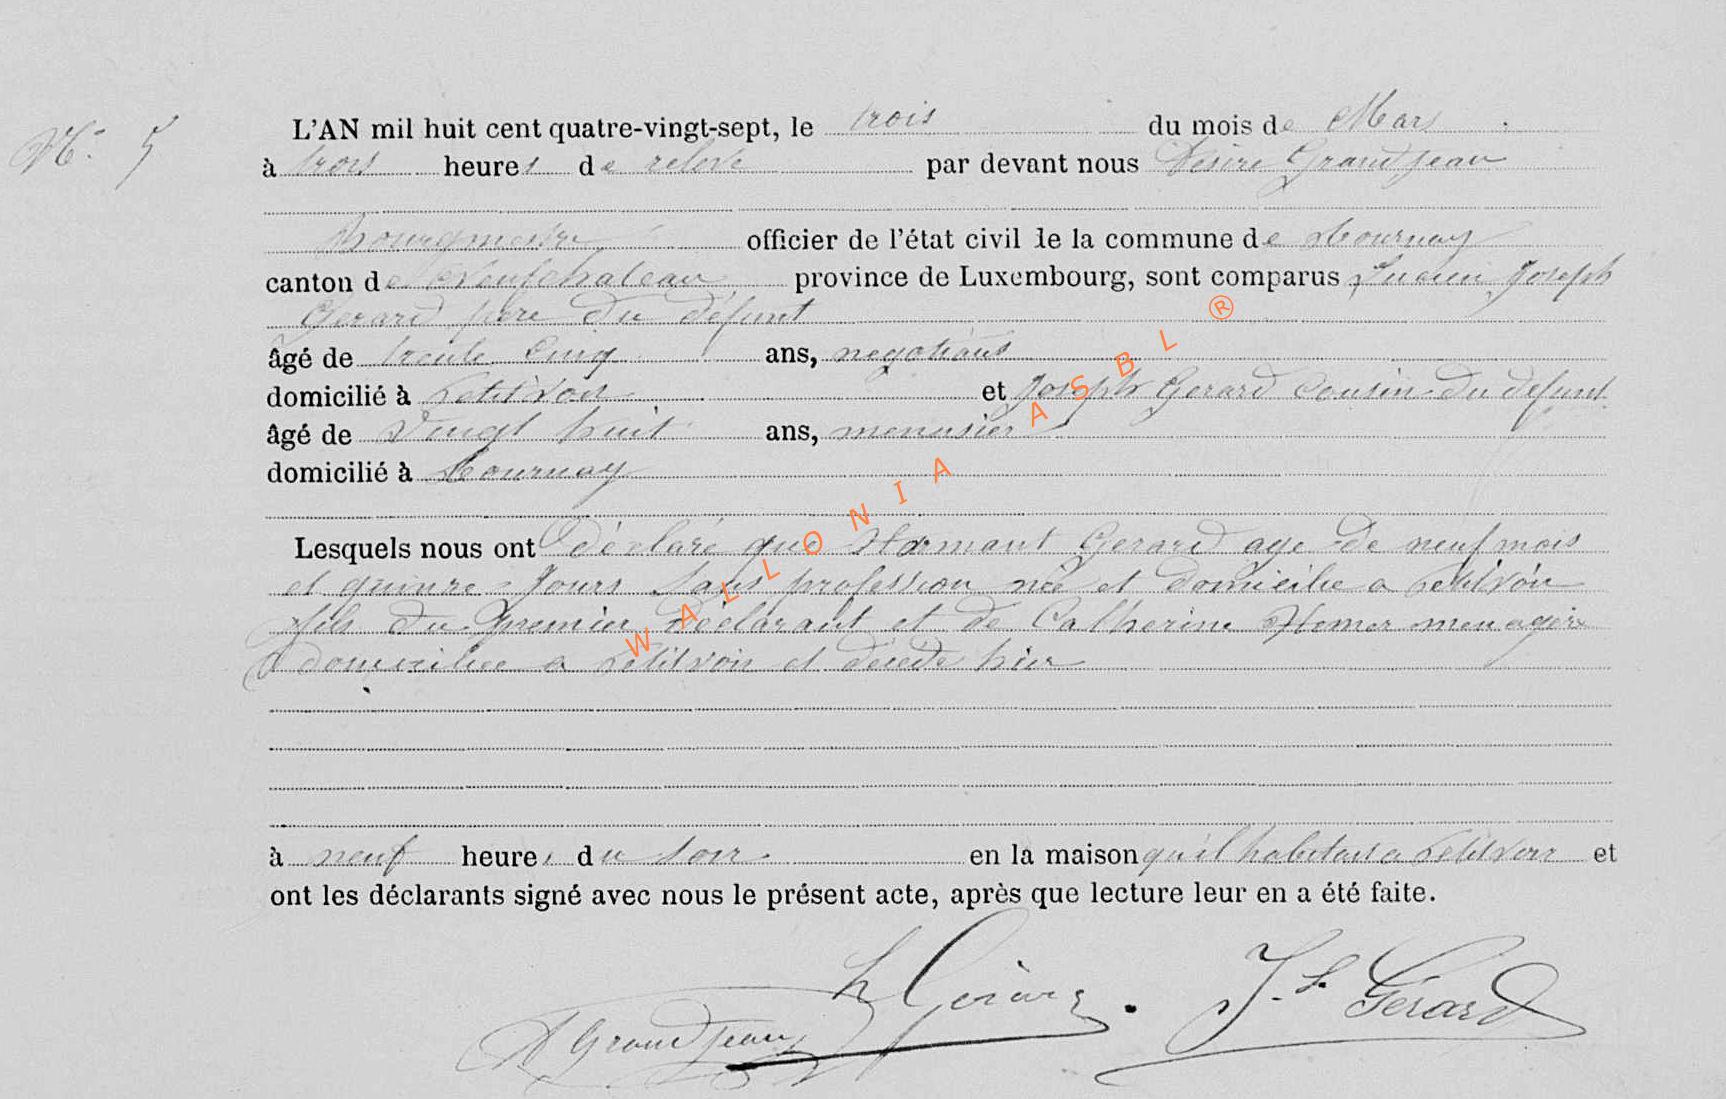 N° 5
L'AN mil huit cent quatre-vingt-sept, le trois du mois de Mars
à trois heures de relevé par devant nous Désiré Grandjean
Bourgmestre officier de l'état civil de la commune de Tournay
canton de Neufchateau province de Luxembourg, sont comparus Lucien Joseph
Gerard père du défunt
âgé de trente cinq ans, negotiant
domicilié à Petitvoir et Joseph Gerard Cousin du defunt
âgé de Vingt huit ans, menusier
domicilié à Tournay
Lesquels nous ont déclaré que Gerard age de neuf mois
et quinze Jours Sans profession née et domicilie a Petitvoir
fils du premier déclarant et de Catherine menagère
domiciliee a Petitvoir et décédé hier
à neuf heures du soir en la maison qu'il habitait a Petitvoir et
ont les déclarants signé avec nous le présent acte, après que lecture leur en a été faite.
Gérard J. Gérard
D Grandjean
WALLONIA ASBL ®